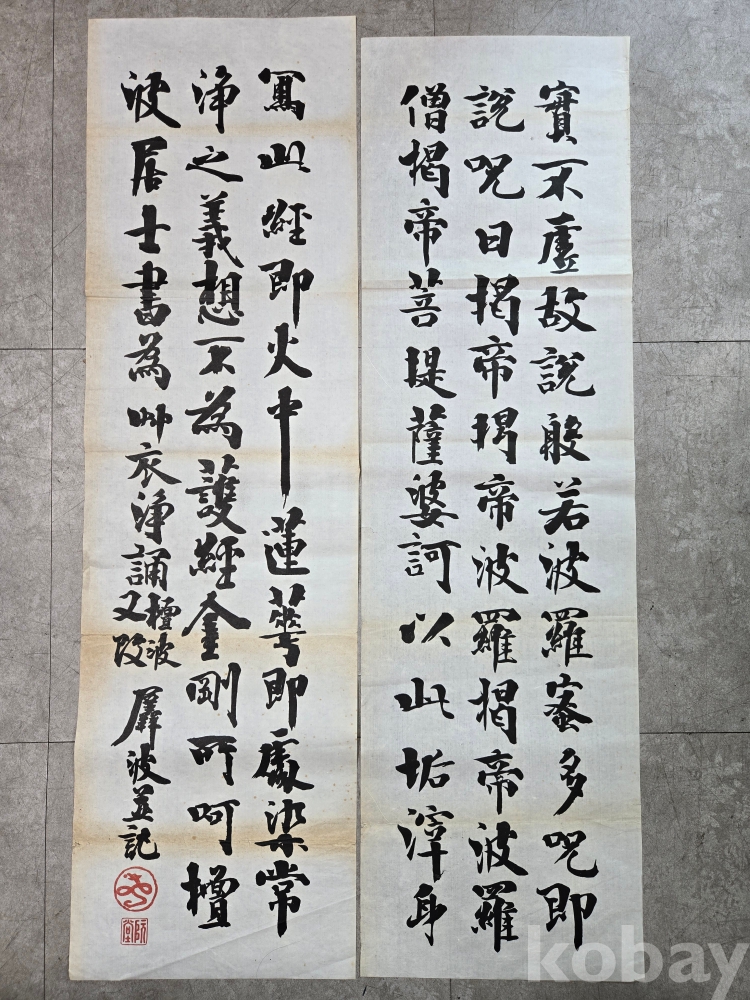 實不虛故說般若波羅蜜多呪即
說呪曰揭帝揭帝波羅揭帝波羅
僧揭帝菩提薩婆訶以此垢滓身
寫此經即火中蓮蕚即處染常
淨之義想不為護經金剛所呵檀
波居士書為艸衣淨誦
檀波
又改
屏波並記
阮堂
kobay